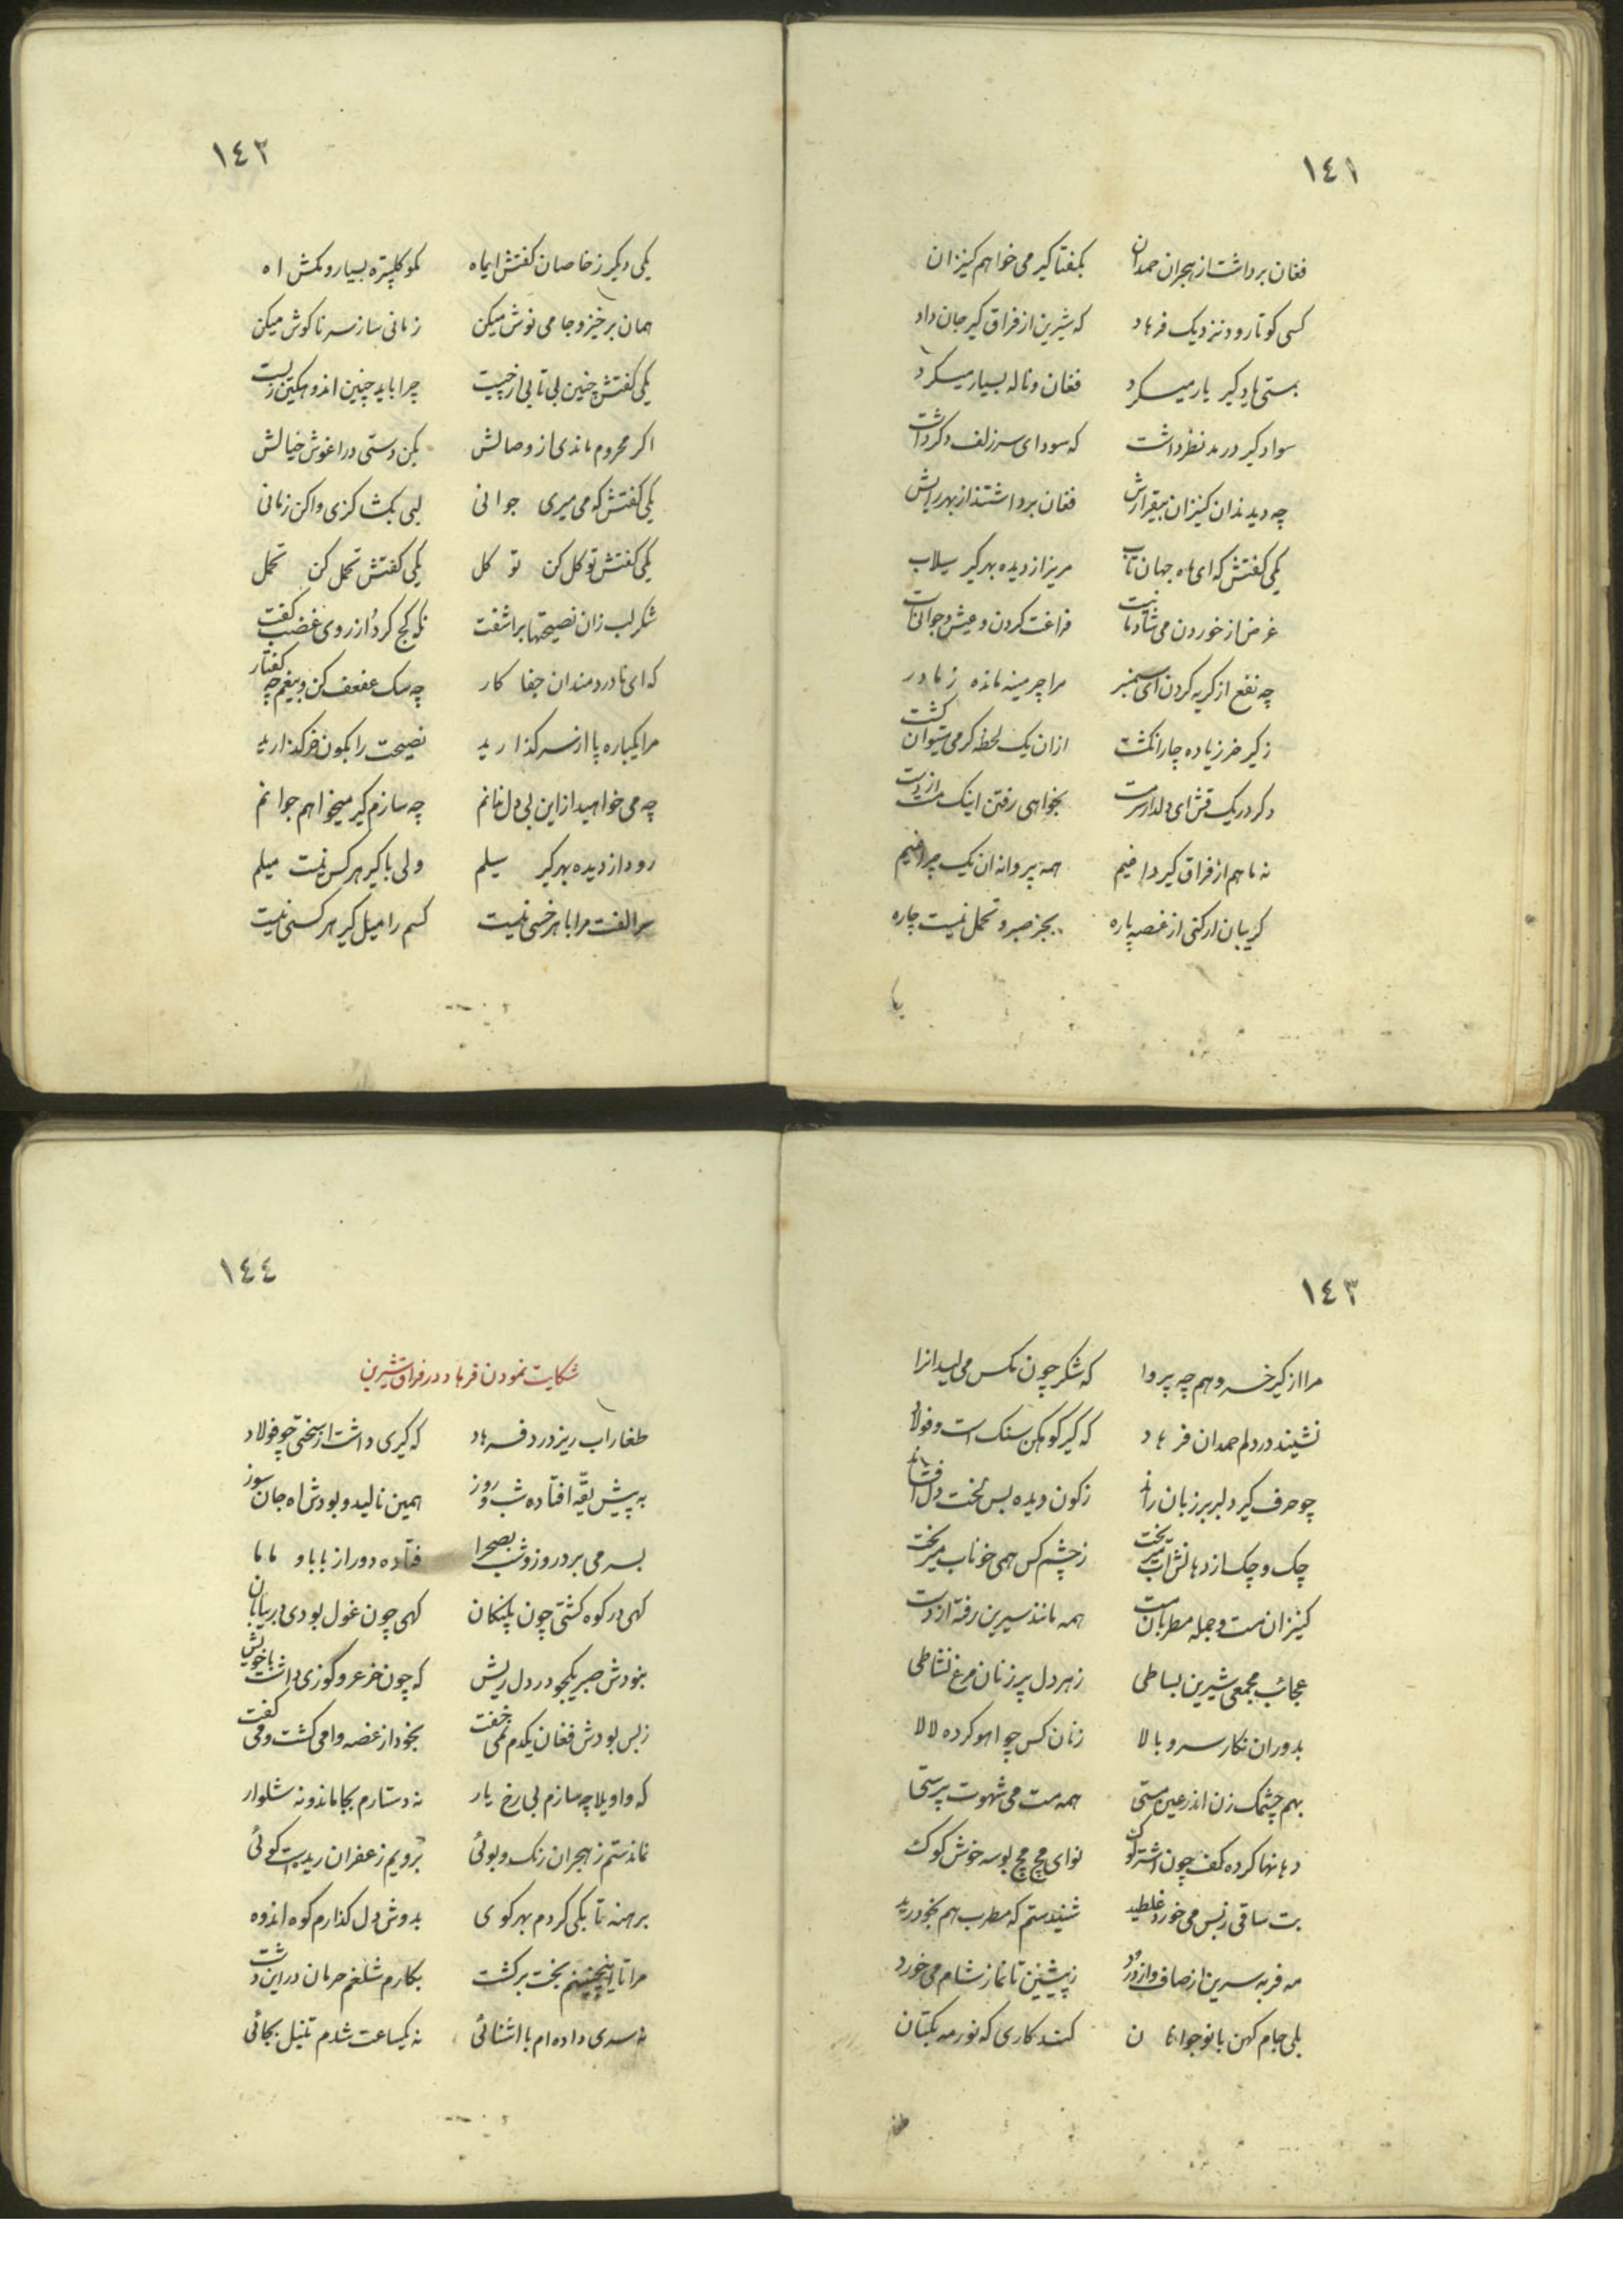 ١٤١
فغان برداشت از هجران حمدان بکفتا کیر می خواهم کنیزان
کسی کو تا رود نزدیک فرهاد که شیرین از فراق کیر جان داد
بمستی یاد کیر یار میکرد فغان و ناله بسیار میکرد
سواد کیر در مد نظر داشت که سودای سر زلف دکر داشت
چه دیدند ان کنیزان بیقرارش فغان برداشتند از بهر
یکی کفتش که ای ماه جهان تاب مریز از دیده بهر کیر سیلاب
غرض از خوردن می فراغت کردن و عیش و
چه نفع از کریه کردن ای سمنبر مرا چرمینه مانده ز مادر
ز کیر خر زیاده چار انکشت ازان یک لحظه کر می میتوان کشت
دکر در یک ای دلدار بخواهی رفتن اینک از دست
نه ما هم از فراق کیر داغیم همه پروانه ان یک چراغیم
کریبان ار کنی از غصه پاره بجز صبر و تحمل نیست چاره
یا
١٤٢
یکی دیکر ز خاصان کفتش ایماه بسیار و مکش اه
همان برخیز و جامی نوش میکن زمانی ساز سرنا کوش میکن
یکی کفتش چنین بی تابی از چیست چرا باید چنین اندوهکین زیست
اکر محروم ماندی از وصالش بکن دستی در اغوش خیالش
یکی کفتش که می میری جوانی لبی بکشا کزی واکن زمانی
یکی کفتش توکل کن توکل یکی کفتش تحمل کن تحمل
شکرلب زان نصیحتها براشفت نکه کج کرد از روی غضب کفت
که ای نادردمندان جفا کار چه سک عفعف کن و بیغم چه کفتار
مرا یکباره پا از سر کذارید نصیحت را بکون خر کذارید
چه می خواهید از این بی دل ندانم چه سازم کیر میخواهم جوانم
رود از دیده بهر کیر سیلم ولی با کیر هر کس نیست میلم
سر الفت مرا با هر خسی نیست کسم را میل کیر هر کسی نیست
١٤٣
مرا از کیر خسرو هم چه پروا که شکر چون مکس می لیسد انرا
نشیند در دلم حمدان فرهاد که کیر کوهکن سنک است و فولاد
چو حرف کیر دلبر بر زبان راند ز کون دیده بس لخت دل افشاند
چک و چک از دهانش اب میریخت ز چشم کس همی خوناب میریخت
کنیزان مست و جمله مطربان مست همه مانند سیرین رفته از دست
عجائب مجمعی شیرین بساطی ز هر دل پر زنان مرغ نشاطی
بدوران نکار سرو بالا زنان کس چو اهو کرده لالا
بهم چشمک زن اندر عین مستی همه مست می شهوت پرستی
دهانها کرده کف چون اشتر نوای مچ مچ بوسه خوش کوک
بت ساقی ز بس می خورد غلطید شنیدستم که مطرب هم بخود رید
مه فربه سرین از صاف و از درد ز پیشین تا نماز شام می خورد
بلی جام کهن با نوجوانان کند کاری که نور مه بکتان
طغا
١٤٤
شکایت نمودن فرهاد در فراق شیرین
طغاراب ریز درد فرهاد که کیری داشت از سختی چو فولاد
به پیش بقّه افتاده شب و روز همین نالید و بودش اه جان سوز
بسر می برد روز و شب بصحرا فتاده دور از بابا و ماما
کهی در کوه کشتی چون پلنکان کهی چون غول بودی در بیابان
نبودش صبر یکجو در دل ریش که چون خر عر و کوزی داشت با خویش
ز بس بودش فغان یکدم نمی خفت بخود از غصه وامی کشت و می کفت
که واویلا چه سازم بی رخ یار نه دستارم بجا ماند و نه شلوار
نماندستم ز هجران رنک و بوئی برویم زعفران ریدست کوئی
برهنه تا بکی کردم بهر کوی بدوش دل کذارم کوه اندوه
مرا تا اینچنینم بخت برکشت بکارم شلغم حرمان در این دشت
نه سری داده ام با اشنائی نه یکساعت شدم تنیل بجائی